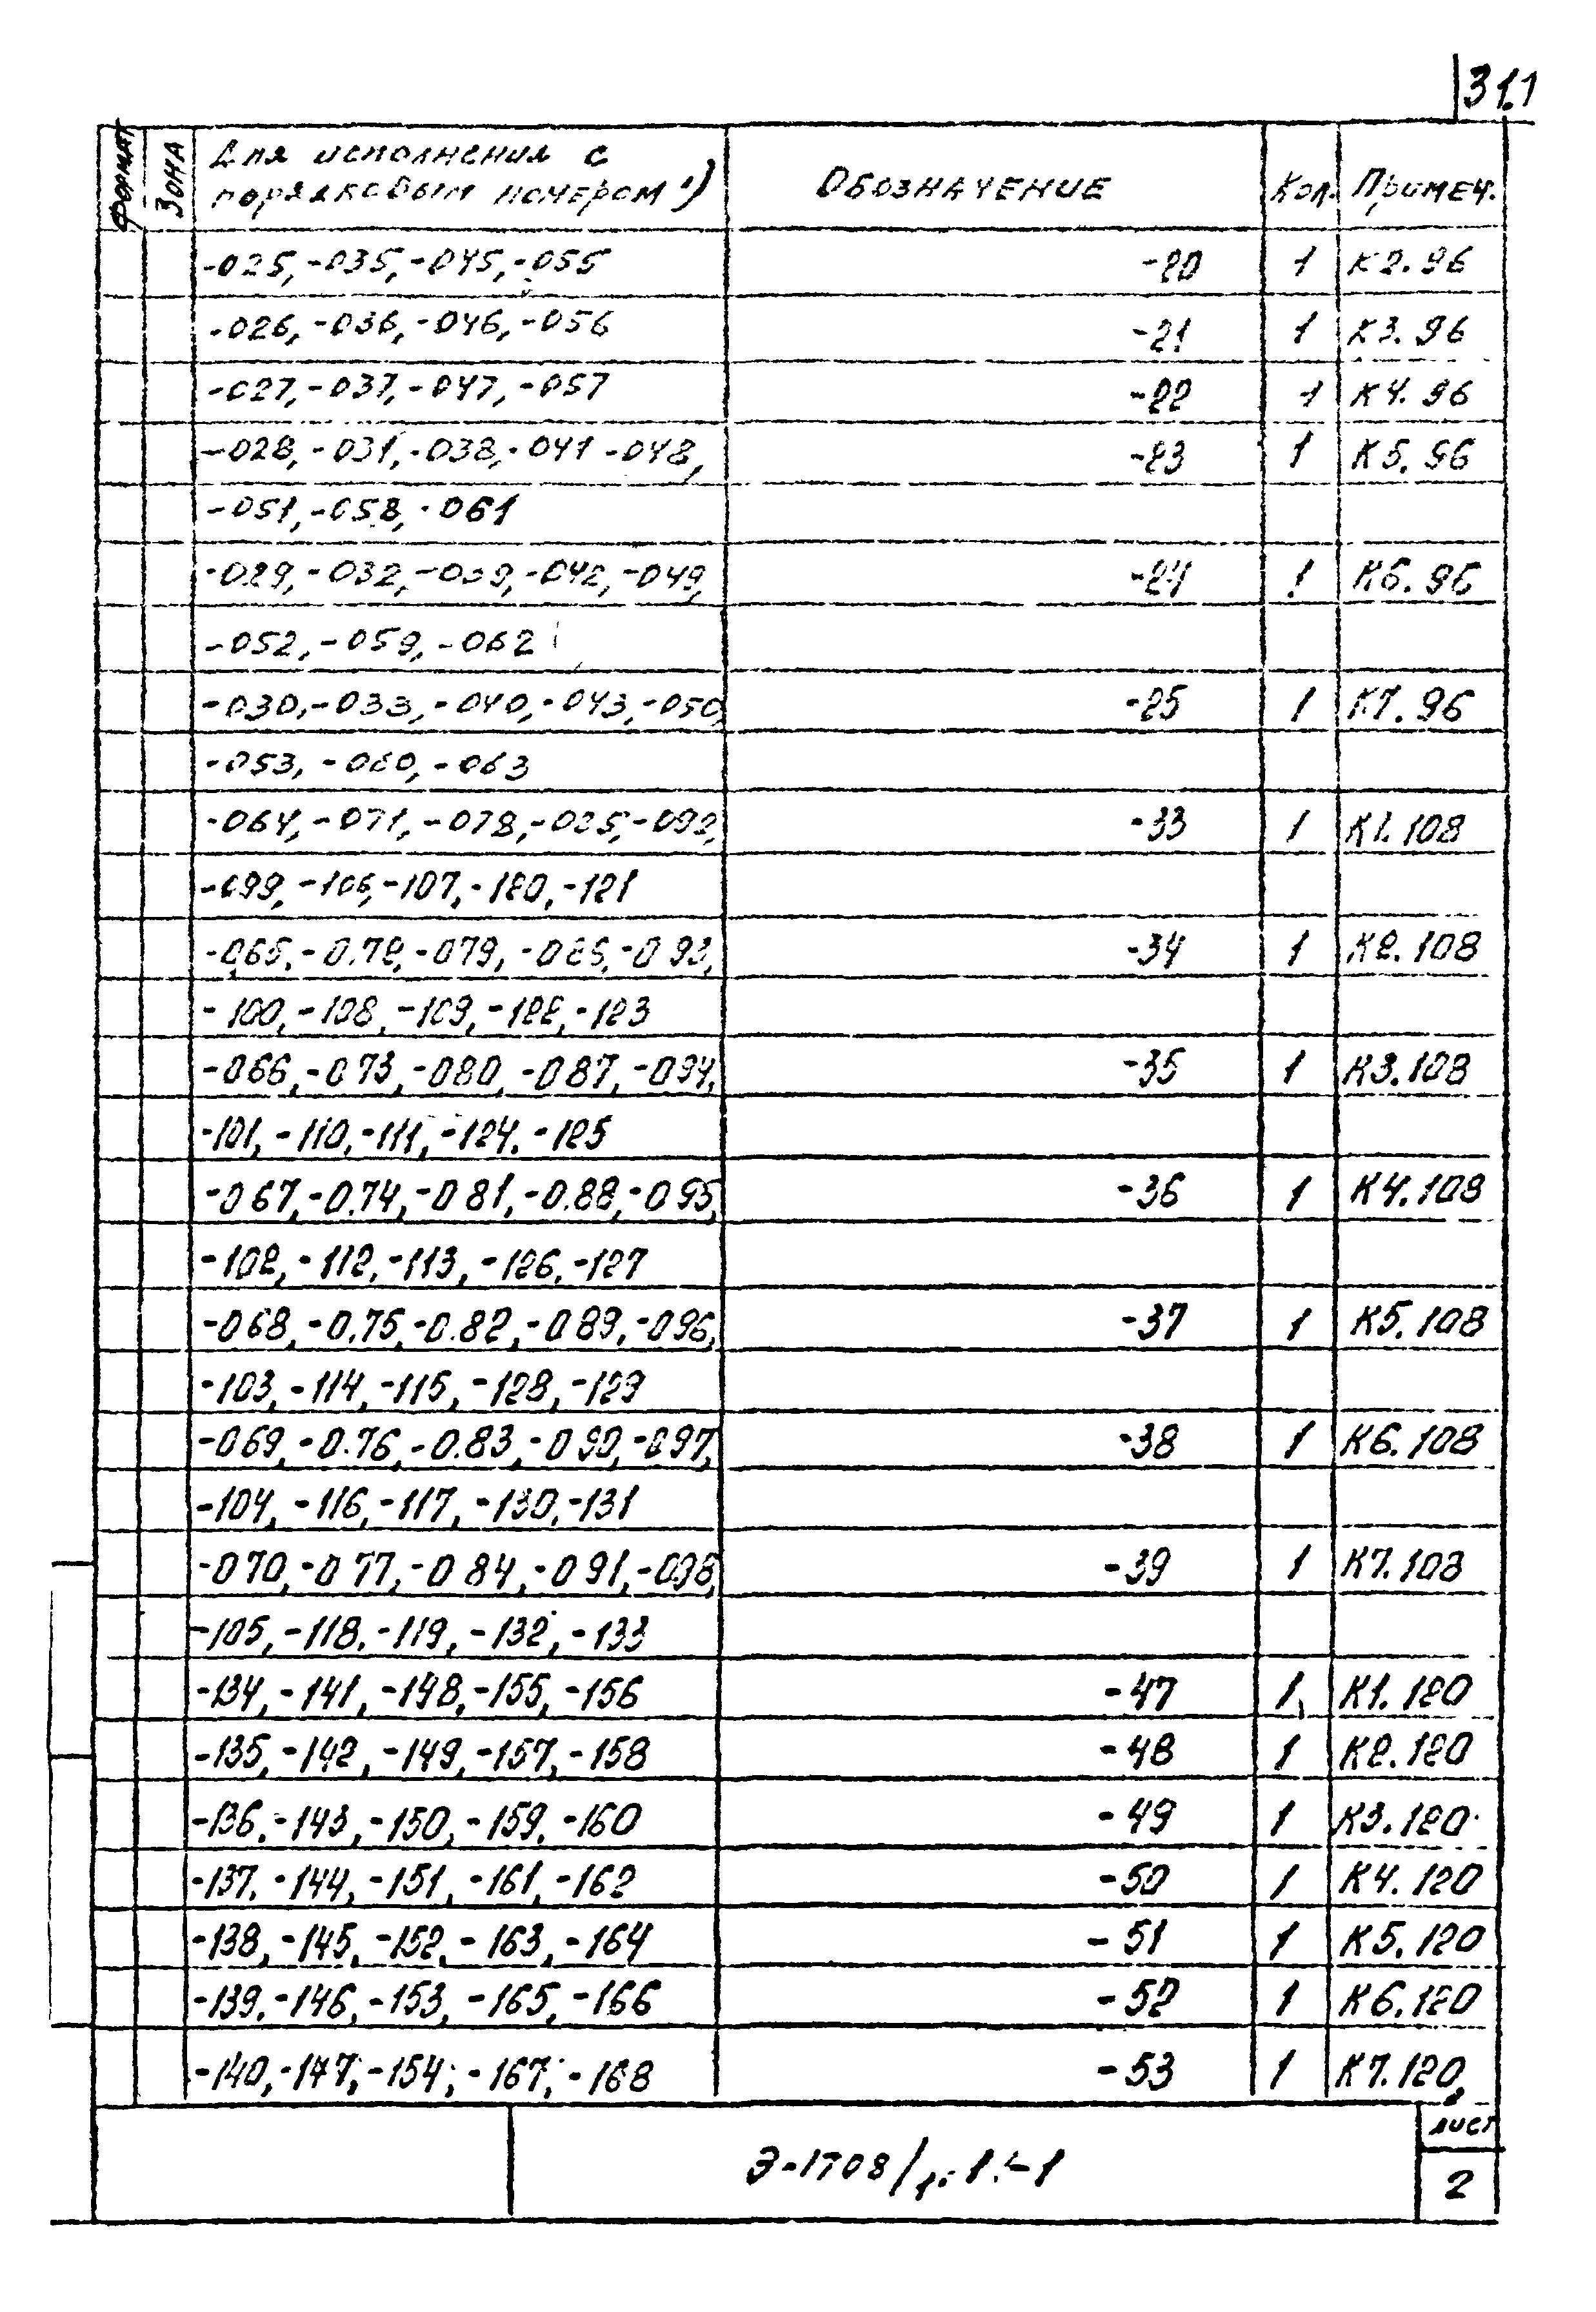 31.1
ФОРМАТ ЗОНА Для исполнения с порядковым номером ¹) ОБОЗНАЧЕНИЕ Кол. Примеч.
-025, -035, -045, -055 -20 1 К2.96
-026, -036, -046, -056 -21 1 К3.96
-027, -037, -047, -057 -22 1 К4.96
-028, -031, -038, -041 -048, -23 1 К5.96
-051, -058, -061
-029, -032, -039, -042, -049, -24 1 К6.96
-052, -059, -062
-030, -033, -040, -043, -050, -25 1 К7.96
-053, -060, -063
-064, -071, -078, -085, -092, -33 1 К1.108
-099, -106, -107, -120, -121
-065, -0.72, -079, -086, -093, -34 1 К2.108
-100, -108, -109, -122, -123
-066, -073, -080, -087, -094, -35 1 К3.108
-101, -110, -111, -124. -125
-067, -0.74, -081, -0.88, -095, -36 1 К4.108
-102, -112, -113, -126, -127
-068, -0.75, -0.82, -089, -096, -37 1 К5.108
-103, -114, -115, -128, -129
-069, -0.76, -0.83, -090, -097, -38 1 К6.108
-104, -116, -117, -130, -131
-070, -077, -084, -091, -098, -39 1 К7.108
-105, -118, -119, -132, -133
-134, -141, -148, -155, -156 -47 1 К1.120
-135, -142, -149, -157, -158 -48 1 К2.120
-136, -143, -150, -159, -160 -49 1 К3.120
-137, -144, -151, -161, -162 -50 1 К4.120
-138, -145, -152, -163, -164 -51 1 К5.120
-139, -146, -153, -165, -166 -52 1 К6.120
-140, -147, -154, -167, -168 -53 1 К7.120
ЛИСТ
Э-1708/1.1.-1
2